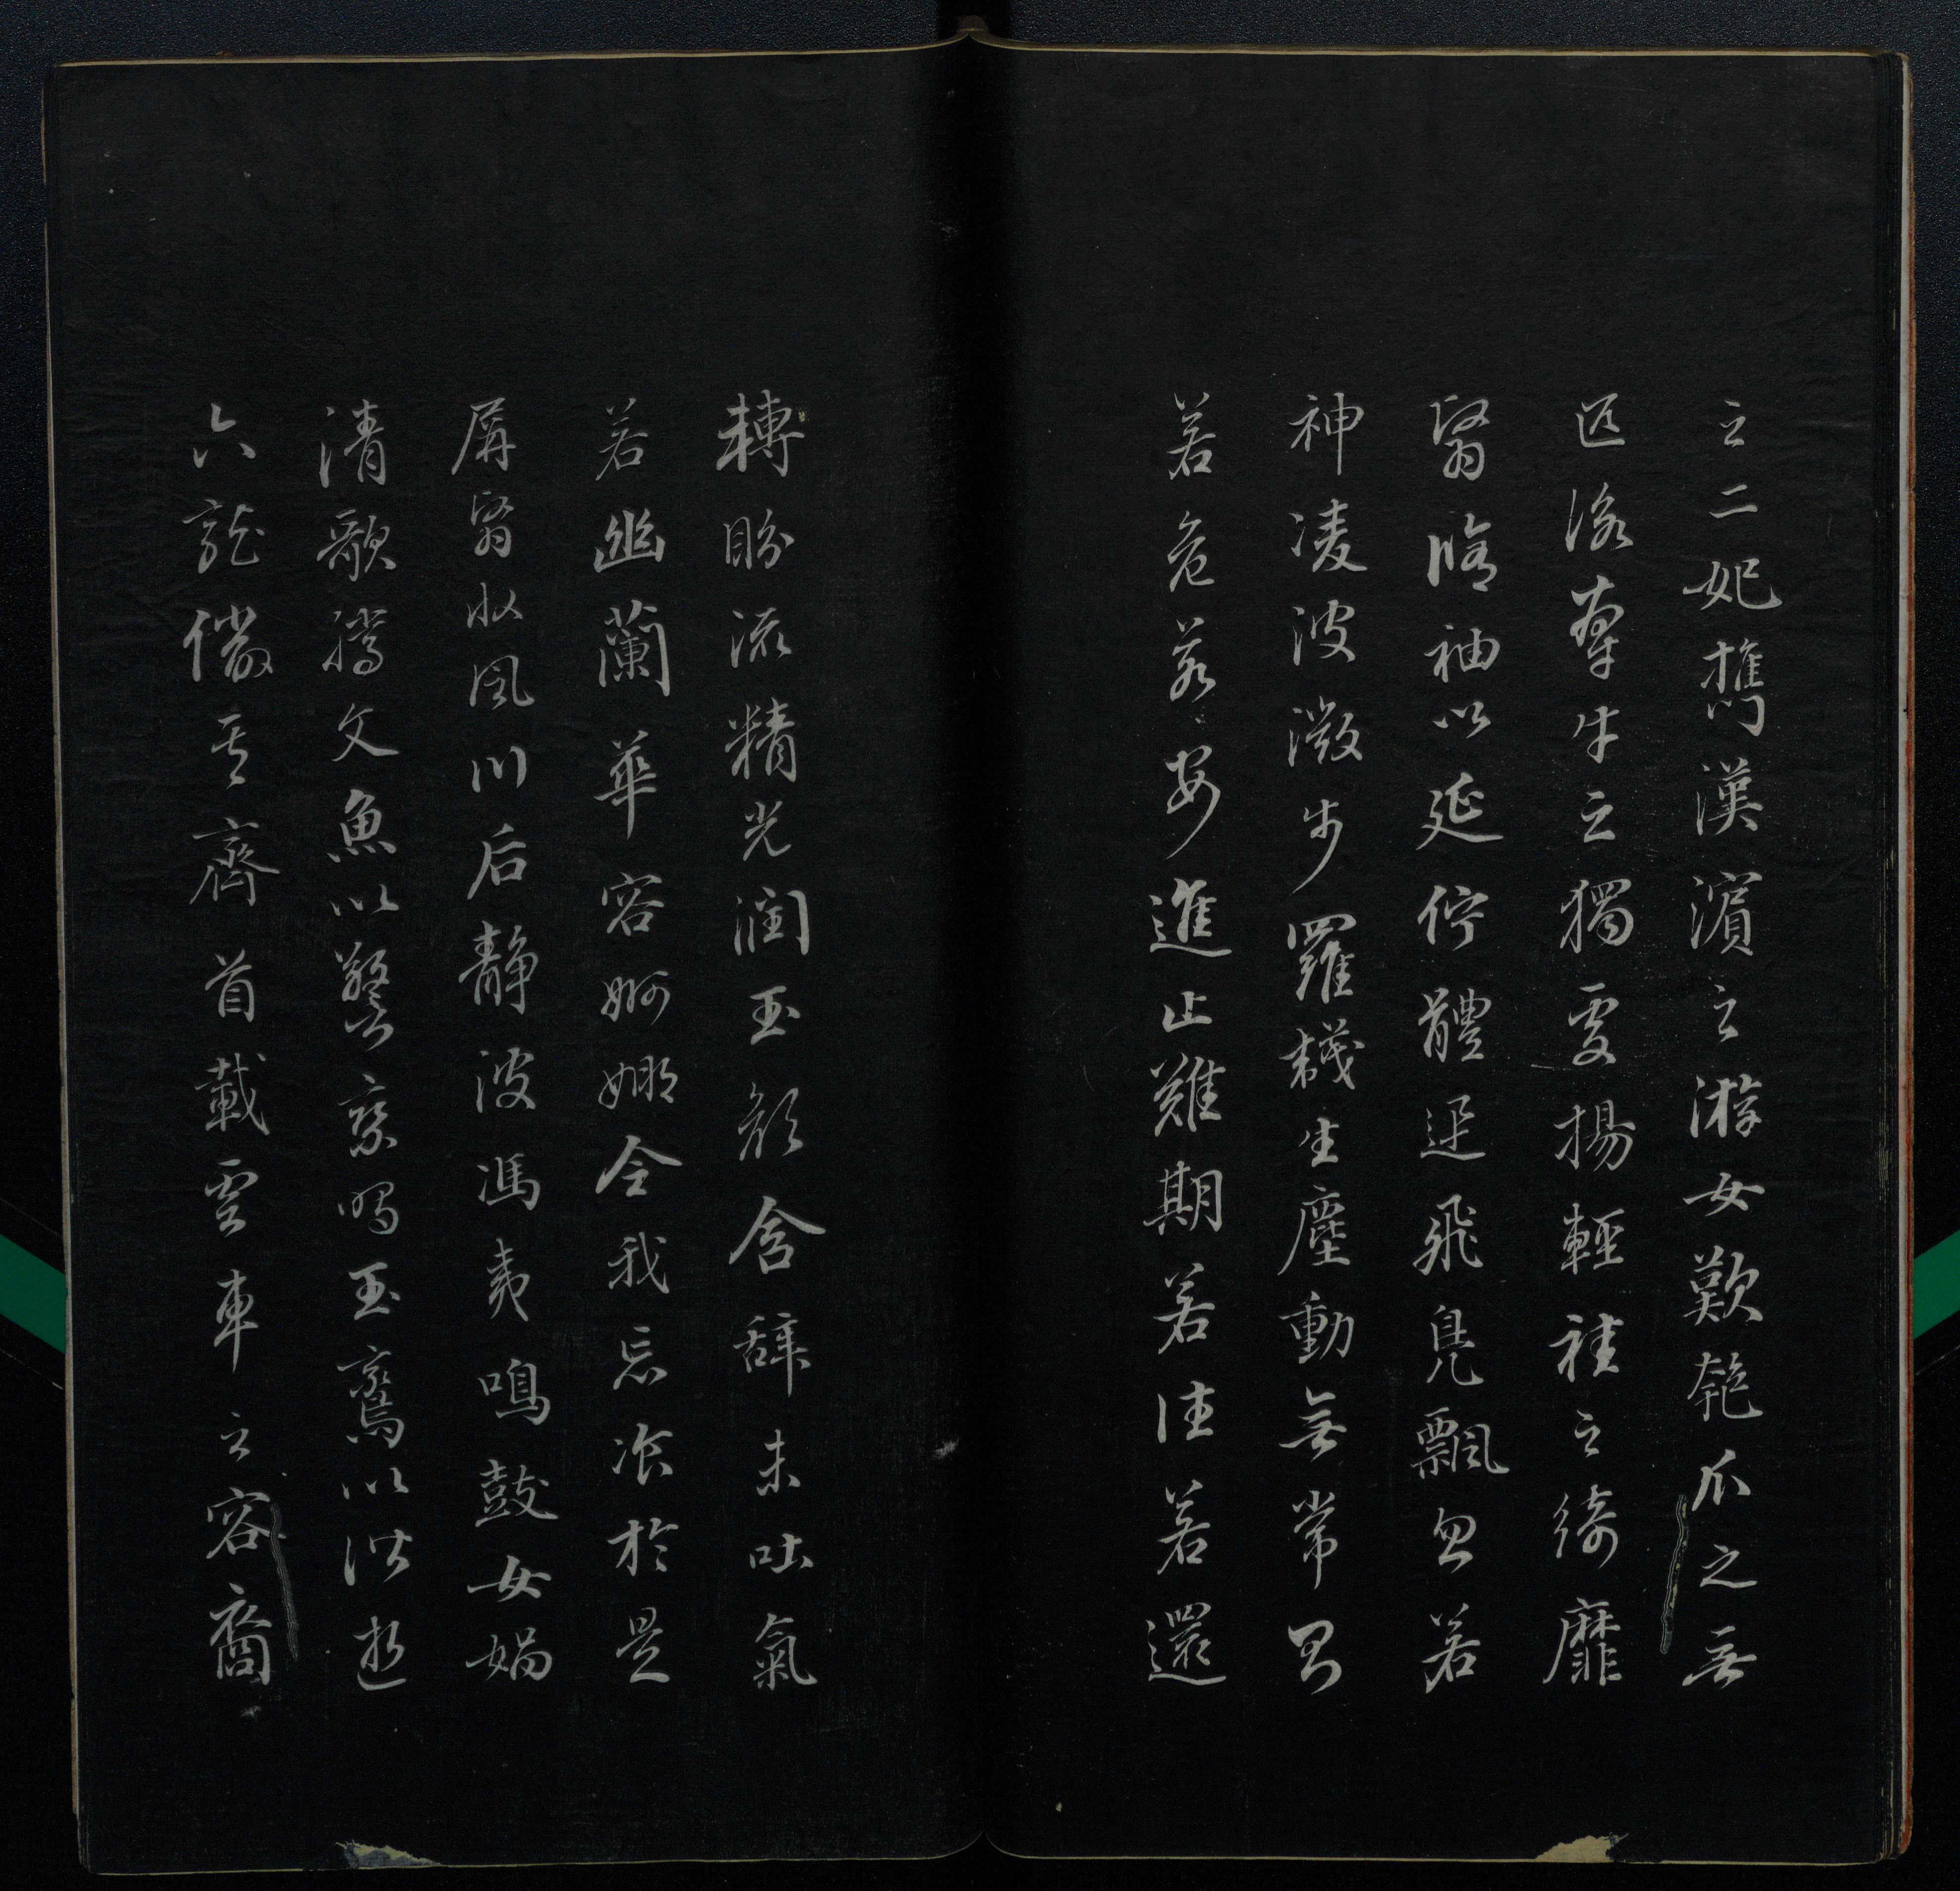 之二妃攜漢濱之游女歎匏瓜之無
匹詠牽牛之獨處揚輕袿之綺靡
翳脩袖以延佇體迅飛鳧飄忽若
神凌波微步羅襪生塵動無常則
若危若安進止難期若往若還
轉盼流精光潤玉顏含辭未吐氣
若幽蘭華容婀娜令我忘飡於是
屏翳收風川后靜波馮夷鳴鼓女媧
清歌騰文魚以警乘鳴玉鸞以偕逝
六龍儼其齊首載雲車之容裔